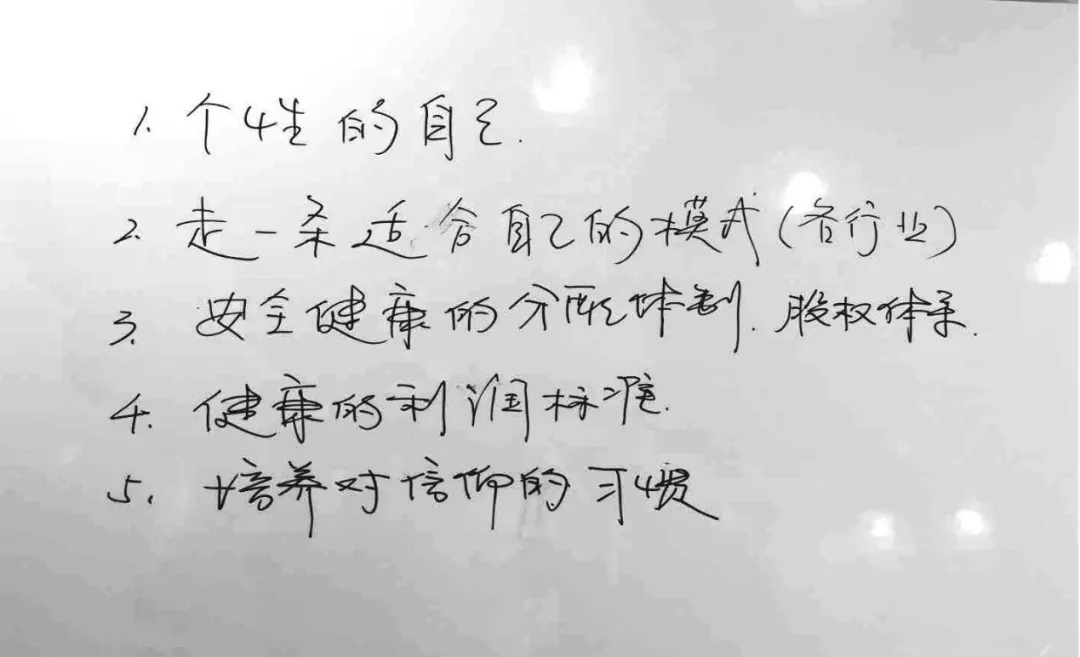 1. 个性的自己.
2. 走一条适合自己的模式(各行业)
3. 安全健康的分配体制.股权体系.
4. 健康的利润标准.
5. 培养对信仰的习惯